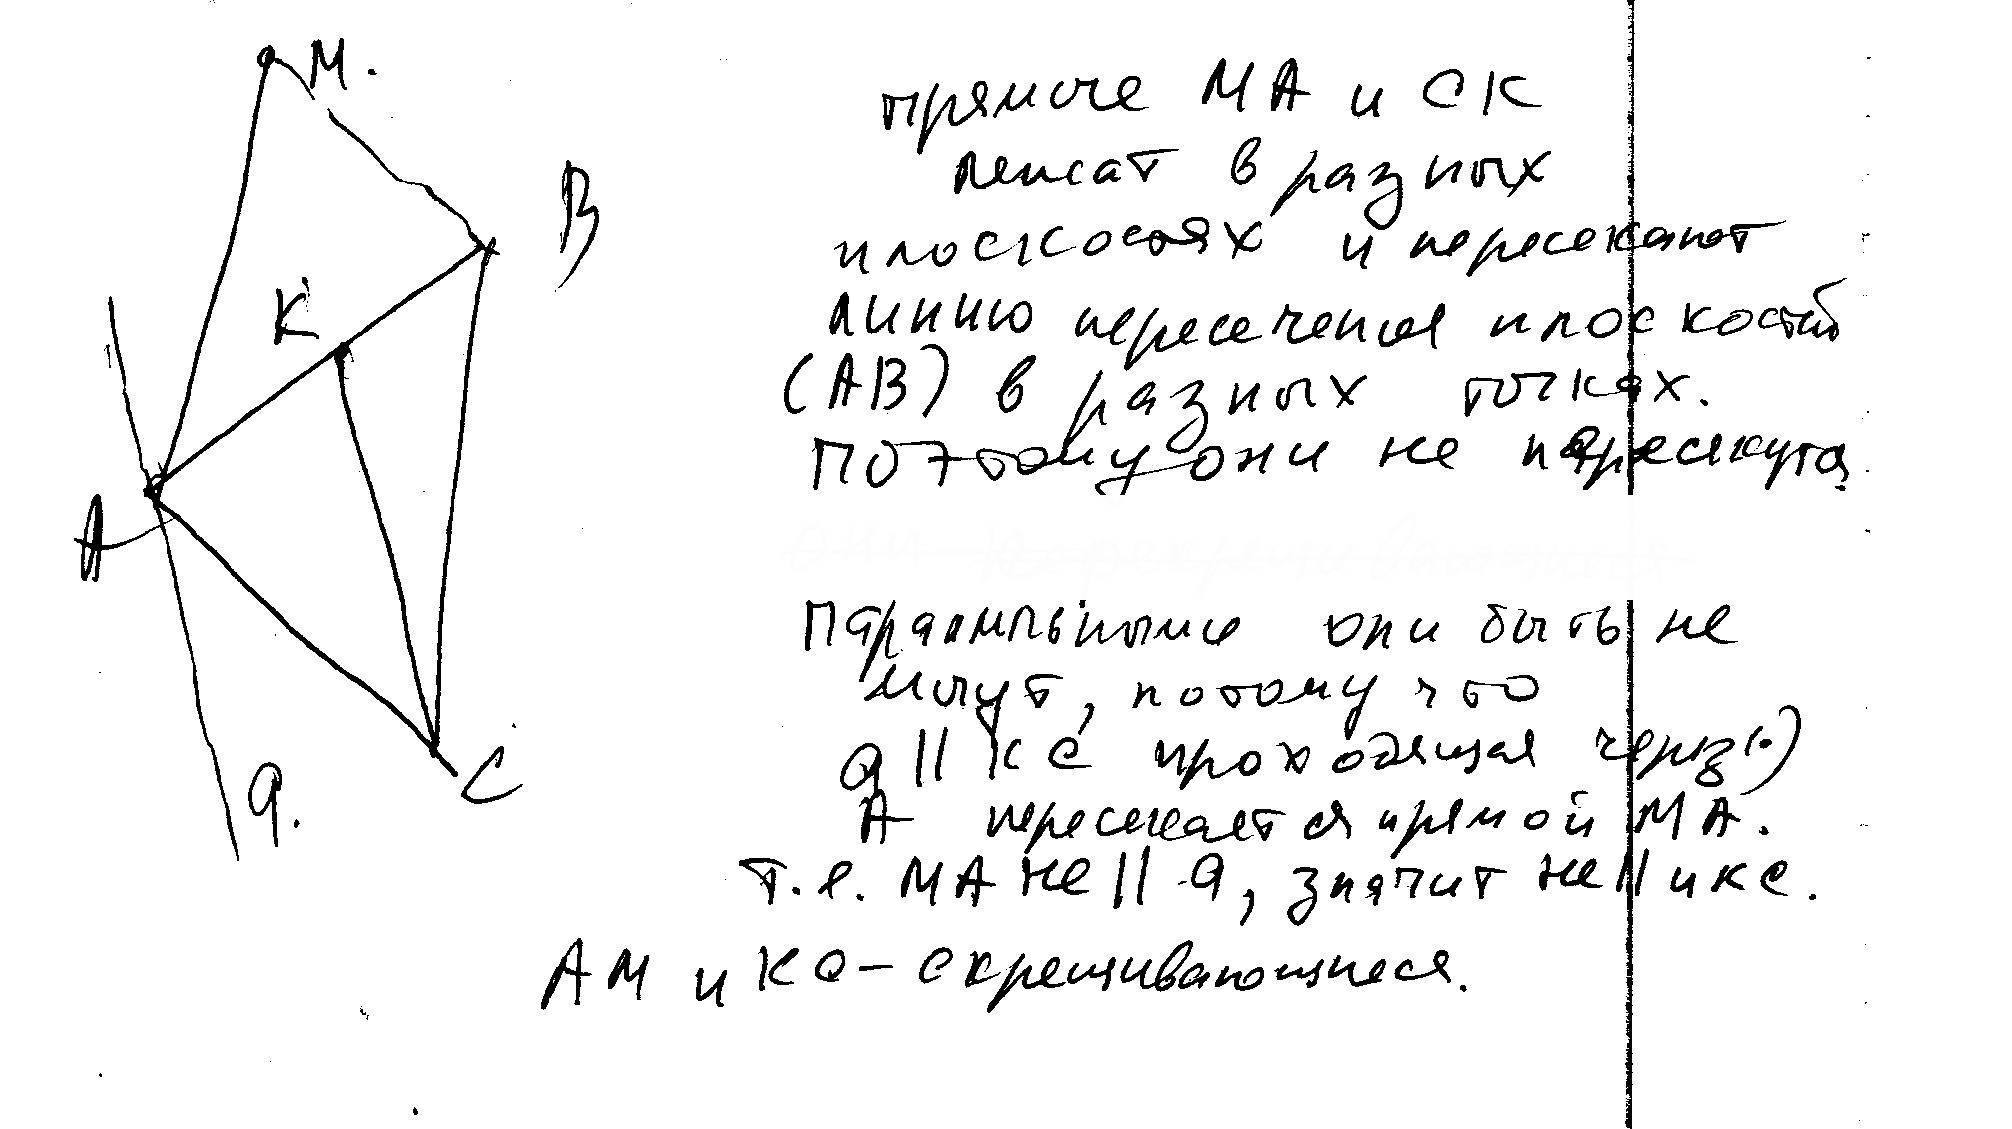 М.
В
К
А
С
а.
прямые МА и СК
лежат в разных
плоскостях и пересекают
линию пересечения плоскостей
(АВ) в разных точках.
Поэтому они не пересекутся
Параллельными они быть не
могут, потому что
а || КС проходящая через (·)
А пересекается прямой МА.
т.е. МА не || а, значит не || и КС.
АМ и КС – скрещивающиеся.